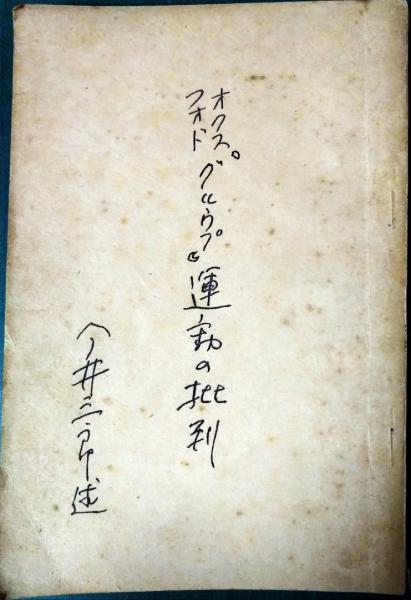 オクスフォド グルウプ運動の批判
今井三郎述